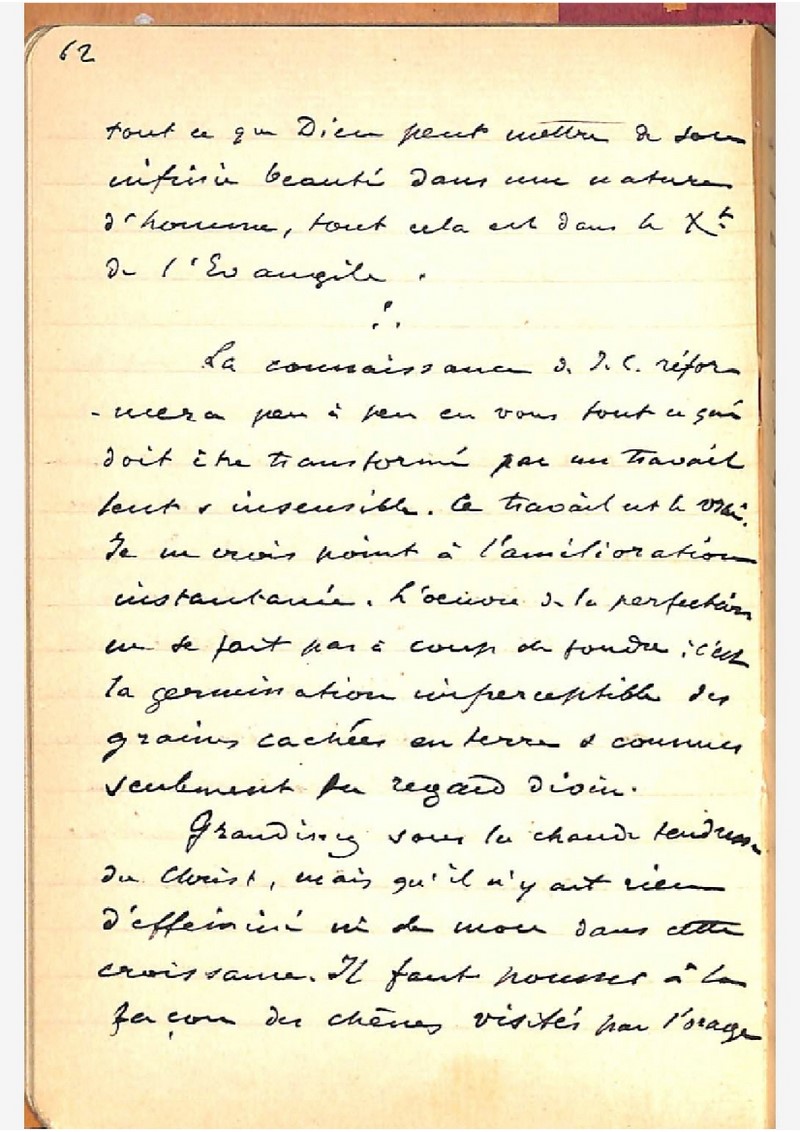 62
tout ce que Dieu peut mettre de son
infinie beauté dans une nature
d'homme, tout cela est dans le Xt.
de l'Evangile.
∴
La connaissance de J.C. réfor
-mera peu à peu en vous tout ce qui
doit être transformé par un travail
lent & insensible. Ce travail est le vrai.
Je ne crois point à l'amélioration
instantanée. L'oeuvre de la perfection
ne se fait pas à coup de foudre : c'est
la germination imperceptible des
grains cachées en terre & connues
seulement du regard divin.
Grandissez sous la chaude tendresse
du Christ, mais qu'il n'y ait rien
d'efféminé ni de mou dans cette
croissance. Il faut pousser à la
façon des chênes visités par l'orage